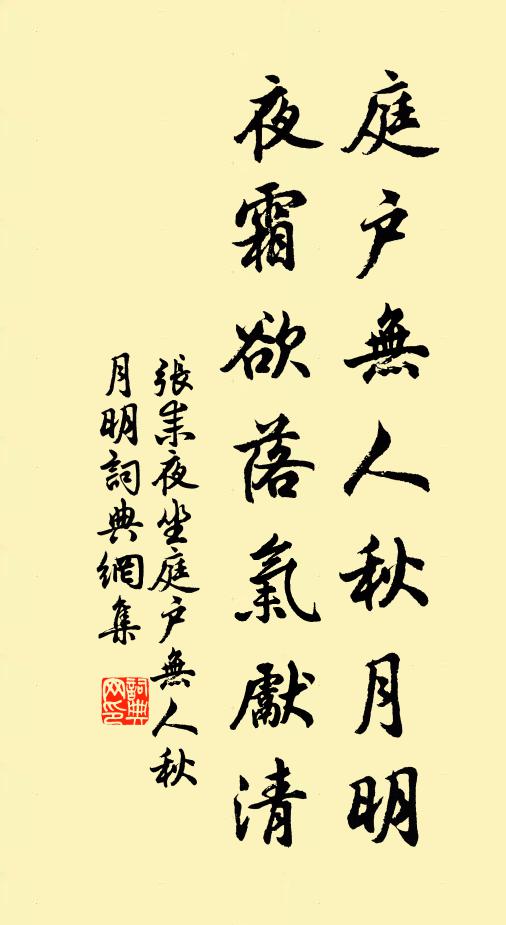 庭户無人秋月明
夜霜欲落氣獻清
張耒夜坐庭户無人秋
月明詞典網集
詞典
网印